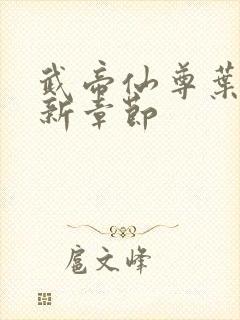 武帝仙尊葉
新章節
扈文峰